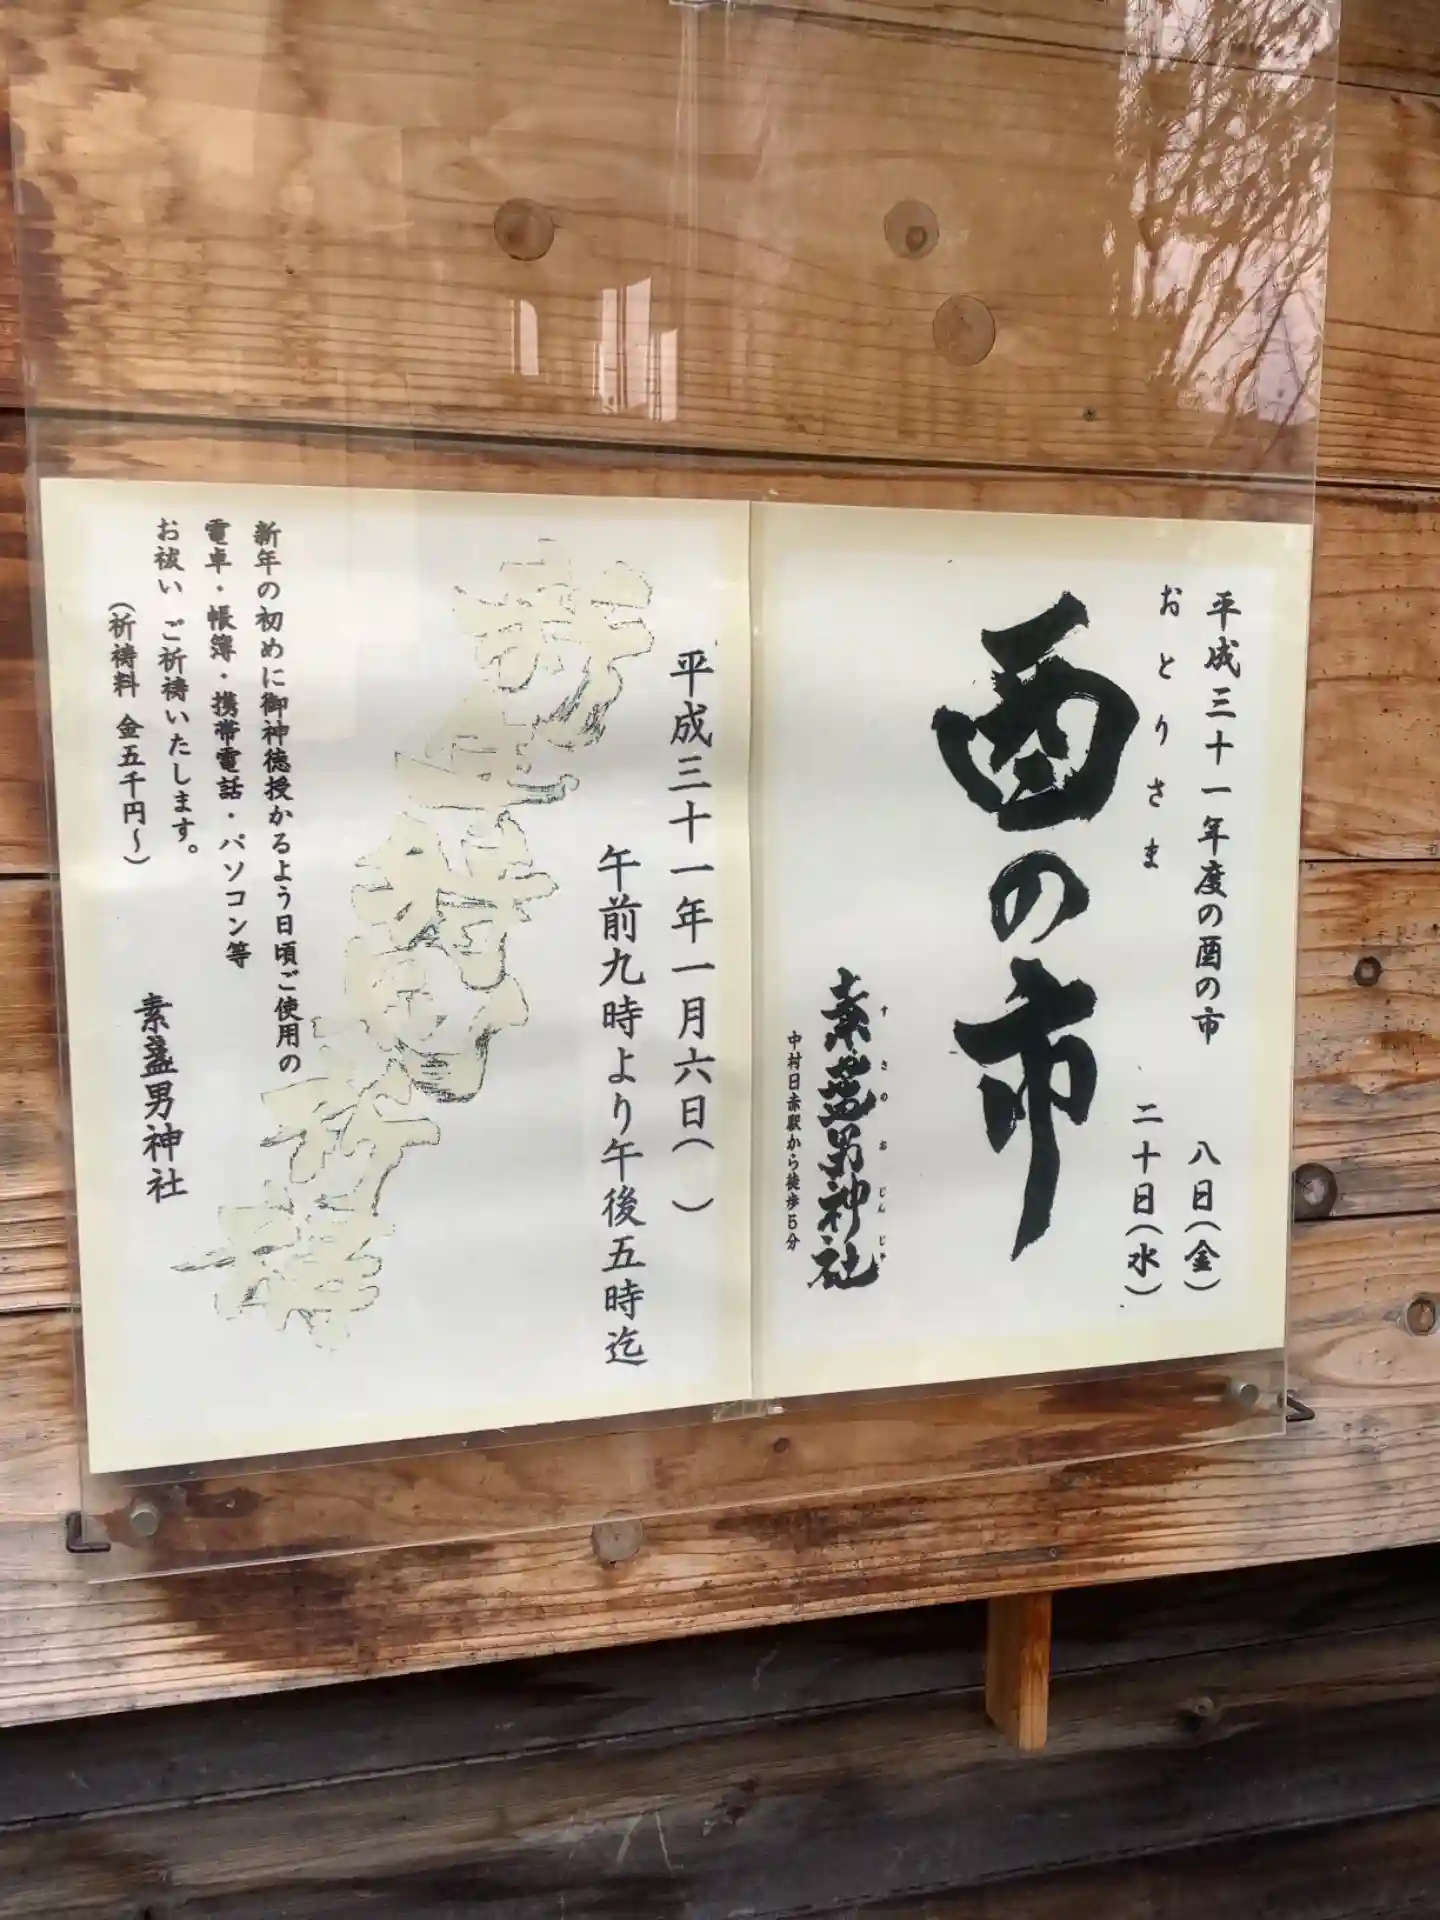 平成三十一年度の酉の市
八日(金)
二十日(水)
おとりさま
酉の市
すさのおじんじゃ
素盞男神社
中村日赤駅から徒歩5分
平成三十一年一月六日( )
午前九時より午後五時迄
新年の初めに御神徳授かるよう日頃ご使用の
電卓・帳簿・携帯電話・パソコン等
お祓い ご祈祷いたします。
(祈祷料 金五千円~)
素盞男神社